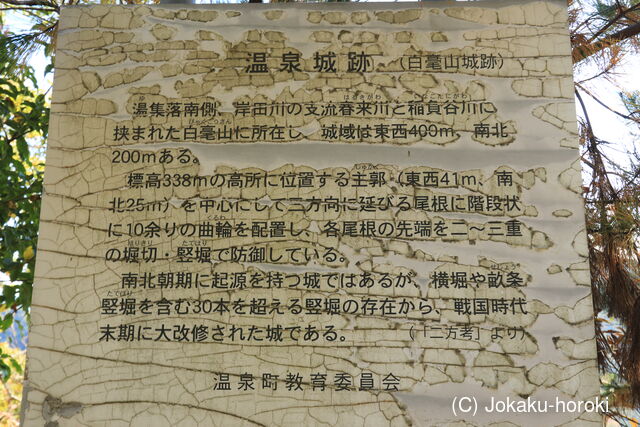 温泉城跡 (白毫山城跡)
湯集落南側、岸田川の支流春来川と稲負谷川に
挟まれた白毫山に所在し、城域は東西400m、南北
200mある。
標高338mの高所に位置する主郭(東西41m、南
北25m)を中心にして三方向に延びる尾根に階段状
に10余りの曲輪を配置し、各尾根の先端を二〜三重
の堀切・竪堀で防御している。
南北朝期に起源を持つ城ではあるが、横堀や畝条
竪堀を含む30本を超える竪堀の存在から、戦国時代
末期に大改修された城である。 (「二方考」より)
温泉町教育委員会
(C) Jokaku-horoki